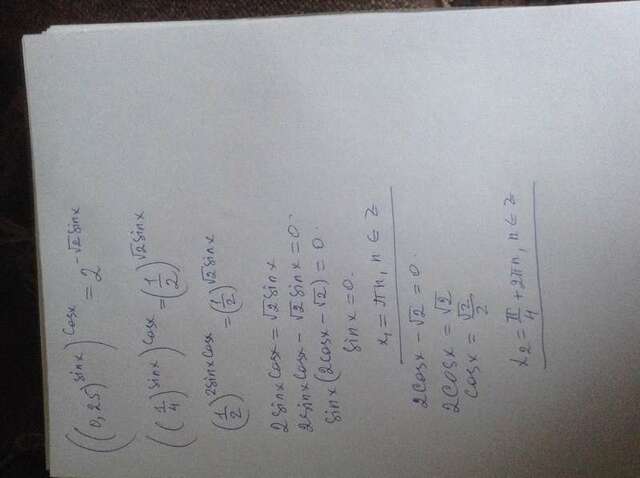 ((0,25)^sinx)^cosx = 2^-√2 sinx
((1/4)^sinx)^cosx = (1/2)^√2 sinx
(1/2)^2sinx cosx = (1/2)^√2 sinx
2sinx cosx = √2 sinx
2sinx cosx - √2 sinx = 0.
sinx(2cosx - √2) = 0.
sinx = 0.
x₁ = πn, n ∈ z
2cosx - √2 = 0.
2cosx = √2
cosx = √2/2
x₂ = π/4 + 2πn, n ∈ z